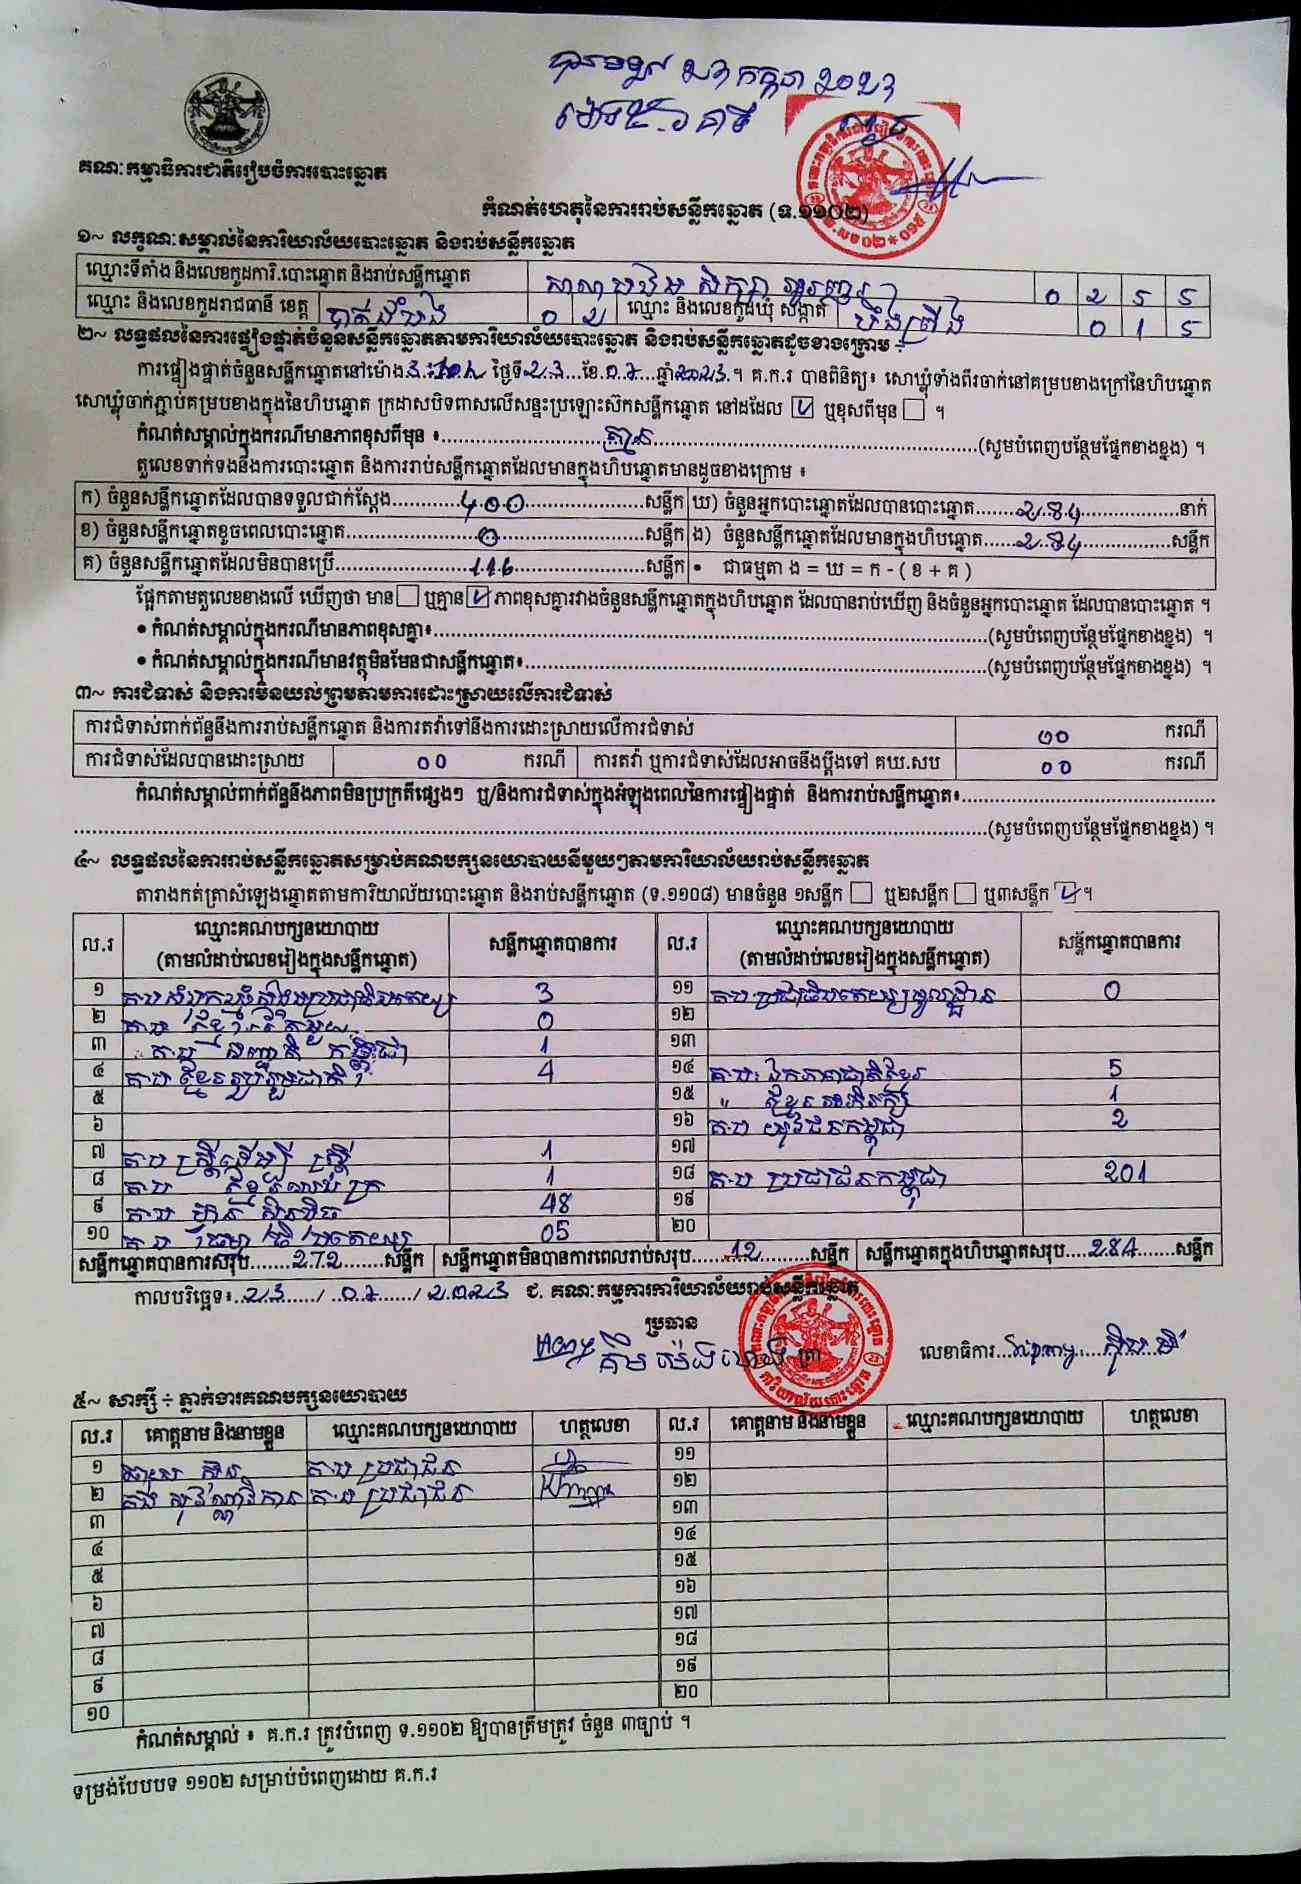 ២៣ កក្កដា ២០២៣
គណៈកម្មាធិការជាតិរៀបចំការបោះឆ្នោត
កំណត់ហេតុនៃការរាប់សន្លឹកឆ្នោត (ទ.១១០២)
១~ លក្ខណៈសម្គាល់នៃការិយាល័យបោះឆ្នោត និងរាប់សន្លឹកឆ្នោត
ឈ្មោះទីតាំង និងលេខកូដការិ.បោះឆ្នោត និងរាប់សន្លឹកឆ្នោត 0 2 5 5
ឈ្មោះ និងលេខកូដរាជធានី ខេត្ត បាត់ដំបង 0 2 ឈ្មោះ និងលេខកូដឃុំ សង្កាត់ 0 1 5
២~ លទ្ធផលនៃការផ្ទៀងផ្ទាត់ចំនួនសន្លឹកឆ្នោតតាមការិយាល័យបោះឆ្នោត និងរាប់សន្លឹកឆ្នោតដូចខាងក្រោម ÷
ការផ្ទៀងផ្ទាត់ចំនួនសន្លឹកឆ្នោតនៅម៉ោង ថ្ងៃទី 23 ខែ 07 ឆ្នាំ 2023 ។ គ.ក.រ បានពិនិត្យ៖ សោឃ្លុំទាំងពីរចាក់នៅគម្របខាងក្រៅនៃហិបឆ្នោត
សោឃ្លុំចាក់ភ្ជាប់គម្របខាងក្នុងនៃហិបឆ្នោត ក្រដាសបិទពាសលើសន្ទះប្រឡោះស៊កសន្លឹកឆ្នោត នៅដដែល ឬខុសពីមុន ។
កំណត់សម្គាល់ក្នុងករណីមានភាពខុសពីមុន ៖ គ្មាន (សូមបំពេញបន្ថែមផ្នែកខាងខ្នង) ។
តួលេខទាក់ទងនឹងការបោះឆ្នោត និងការរាប់សន្លឹកឆ្នោតដែលមានក្នុងហិបឆ្នោតមានដូចខាងក្រោម ៖
ក) ចំនួនសន្លឹកឆ្នោតដែលបានទទួលជាក់ស្តែង 400 សន្លឹក ឃ) ចំនួនអ្នកបោះឆ្នោតដែលបានបោះឆ្នោត 284 នាក់
ខ) ចំនួនសន្លឹកឆ្នោតខូចពេលបោះឆ្នោត 0 សន្លឹក ង) ចំនួនសន្លឹកឆ្នោតដែលមានក្នុងហិបឆ្នោត 284 សន្លឹក
គ) ចំនួនសន្លឹកឆ្នោតដែលមិនបានប្រើ 116 សន្លឹក • ជាធម្មតា ង = ឃ = ក - ( ខ + គ )
ផ្អែកតាមតួលេខខាងលើ ឃើញថា មាន ឬគ្មាន ភាពខុសគ្នារវាងចំនួនសន្លឹកឆ្នោតក្នុងហិបឆ្នោត ដែលបានរាប់ឃើញ និងចំនួនអ្នកបោះឆ្នោត ដែលបានបោះឆ្នោត ។
• កំណត់សម្គាល់ក្នុងករណីមានភាពខុសគ្នា៖ (សូមបំពេញបន្ថែមផ្នែកខាងខ្នង) ។
• កំណត់សម្គាល់ក្នុងករណីមានវត្ថុមិនមែនជាសន្លឹកឆ្នោត៖ (សូមបំពេញបន្ថែមផ្នែកខាងខ្នង) ។
៣~ ការជំទាស់ និងការមិនយល់ព្រមតាមការដោះស្រាយលើការជំទាស់
ការជំទាស់ពាក់ព័ន្ធនឹងការរាប់សន្លឹកឆ្នោត និងការតវ៉ាទៅនឹងការដោះស្រាយលើការជំទាស់ 00 ករណី
ការជំទាស់ដែលបានដោះស្រាយ 00 ករណី ការតវ៉ា ឬការជំទាស់ដែលអាចនឹងប្តឹងទៅ គឃ.សប 00 ករណី
កំណត់សម្គាល់ពាក់ព័ន្ធនឹងភាពមិនប្រក្រតីផ្សេងៗ ឬ/និងការជំទាស់ក្នុងអំឡុងពេលនៃការផ្ទៀងផ្ទាត់ និងការរាប់សន្លឹកឆ្នោត៖
(សូមបំពេញបន្ថែមផ្នែកខាងខ្នង) ។
៤~ លទ្ធផលនៃការរាប់សន្លឹកឆ្នោតសម្រាប់គណបក្សនយោបាយនីមួយៗតាមការិយាល័យរាប់សន្លឹកឆ្នោត
តារាងកត់ត្រាសំឡេងឆ្នោតតាមការិយាល័យបោះឆ្នោត និងរាប់សន្លឹកឆ្នោត (ទ.១១០៨) មានចំនួន ១សន្លឹក ឬ២សន្លឹក ឬ៣សន្លឹក ។
ល.រ ឈ្មោះគណបក្សនយោបាយ (តាមលំដាប់លេខរៀងក្នុងសន្លឹកឆ្នោត) សន្លឹកឆ្នោតបានការ ល.រ ឈ្មោះគណបក្សនយោបាយ (តាមលំដាប់លេខរៀងក្នុងសន្លឹកឆ្នោត) សន្លឹកឆ្នោតបានការ
១ 3 ១១ គ.ប ប្រជាធិបតេយ្យមូលដ្ឋាន 0
២ 0 ១២
៣ គ.ប ជញ្ជាតិ កម្ពុជា 1 ១៣
៤ គ.ប ខ្មែររួបរួមជាតិ 4 ១៤ គ.ប ឯកភាពជាតិខ្មែរ 5
៥ ១៥ " ខ្មែរអភិរក្ស 1
៦ ១៦ គ.ប យុវជនកម្ពុជា 2
៧ គ.ប ស្ត្រីដើម្បី ស្ត្រី 1 ១៧
៨ គ.ប ខ្មែរឈប់ក្រ 1 ១៨ គ.ប ប្រជាជនកម្ពុជា 201
៩ គ.ប ហ៊្វុនស៊ិនប៉ិច 48 ១៩
១០ គ.ប ធម្មាធិបតេយ្យ 05 ២០
សន្លឹកឆ្នោតបានការសរុប 272 សន្លឹក សន្លឹកឆ្នោតមិនបានការពេលរាប់សរុប 12 សន្លឹក សន្លឹកឆ្នោតក្នុងហិបឆ្នោតសរុប 284 សន្លឹក
កាលបរិច្ឆេទ៖ 23 / 07 / 2023 ជ. គណៈកម្មការការិយាល័យរាប់សន្លឹកឆ្នោត
ប្រធាន
លេខាធិការ
៥~ សាក្សី ÷ ភ្នាក់ងារគណបក្សនយោបាយ
ល.រ គោត្តនាម និងនាមខ្លួន ឈ្មោះគណបក្សនយោបាយ ហត្ថលេខា ល.រ គោត្តនាម និងនាមខ្លួន ឈ្មោះគណបក្សនយោបាយ ហត្ថលេខា
១ គ.ប ប្រជាជន ១១
២ គ.ប ប្រជាជន ១២
៣ ១៣
៤ ១៤
៥ ១៥
៦ ១៦
៧ ១៧
៨ ១៨
៩ ១៩
១០ ២០
កំណត់សម្គាល់ ៖ គ.ក.រ ត្រូវបំពេញ ទ.១១០២ ឱ្យបានត្រឹមត្រូវ ចំនួន ៣ច្បាប់ ។
ទម្រង់បែបបទ ១១០២ សម្រាប់បំពេញដោយ គ.ក.រ